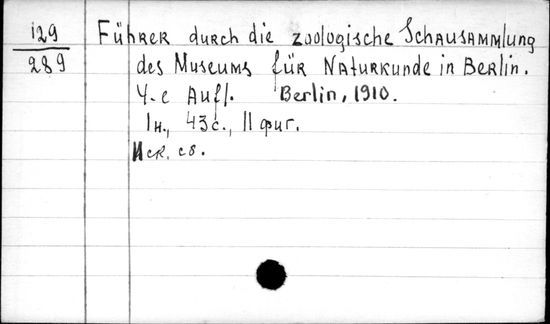 i29 Führer durch die zoologische Schausammlung
289 des Museums für Naturkunde in Berlin.
4-e Aufl. Berlin, 1910.
1н., 43с., 11 фиг.
Иск. сз.